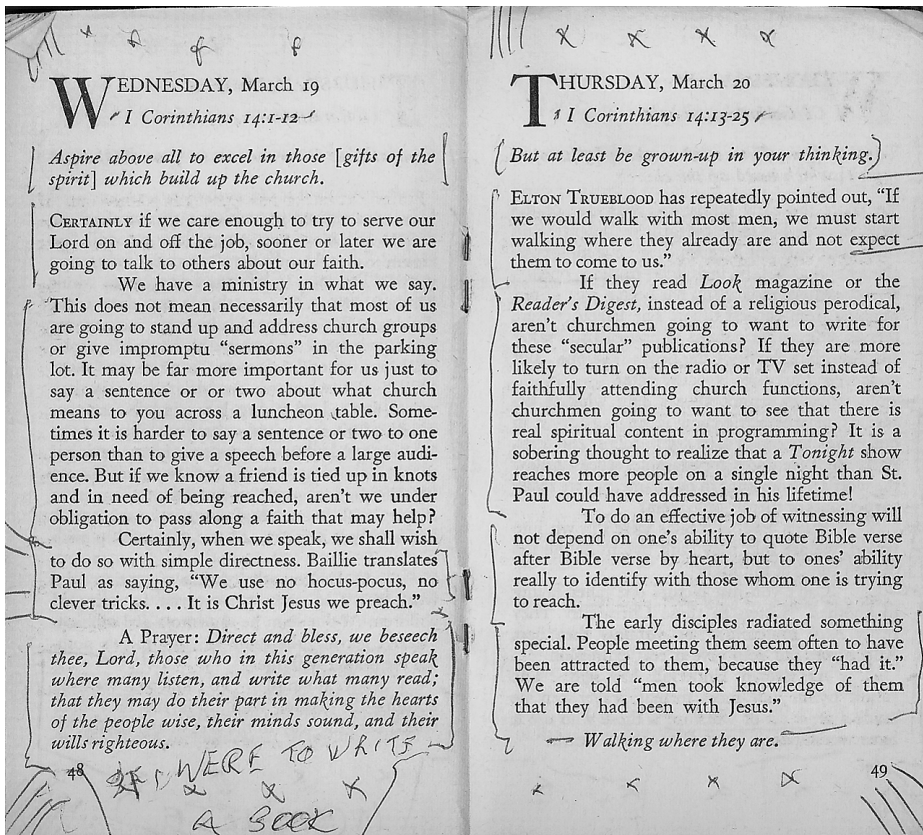 WEDNESDAY, March 19
I Corinthians 14:1-12
Aspire above all to excel in those [gifts of the
spirit] which build up the church.
CERTAINLY if we care enough to try to serve our
Lord on and off the job, sooner or later we are
going to talk to others about our faith.
We have a ministry in what we say.
This does not mean necessarily that most of us
are going to stand up and address church groups
or give impromptu “sermons” in the parking
lot. It may be far more important for us just to
say a sentence or or two about what church
means to you across a luncheon table. Some-
times it is harder to say a sentence or two to one
person than to give a speech before a large audi-
ence. But if we know a friend is tied up in knots
and in need of being reached, aren’t we under
obligation to pass along a faith that may help?
Certainly, when we speak, we shall wish
to do so with simple directness. Baillie translates
Paul as saying, “We use no hocus-pocus, no
clever tricks. . . . It is Christ Jesus we preach.”
A Prayer: Direct and bless, we beseech
thee, Lord, those who in this generation speak
where many listen, and write what many read;
that they may do their part in making the hearts
of the people wise, their minds sound, and their
wills righteous.
IF I WERE TO WRITE
48
A BOOK
THURSDAY, March 20
I Corinthians 14:13-25
But at least be grown-up in your thinking.
ELTON TRUEBLOOD has repeatedly pointed out, “If
we would walk with most men, we must start
walking where they already are and not expect
them to come to us.”
If they read Look magazine or the
Reader’s Digest, instead of a religious perodical,
aren’t churchmen going to want to write for
these “secular” publications? If they are more
likely to turn on the radio or TV set instead of
faithfully attending church functions, aren’t
churchmen going to want to see that there is
real spiritual content in programming? It is a
sobering thought to realize that a Tonight show
reaches more people on a single night than St.
Paul could have addressed in his lifetime!
To do an effective job of witnessing will
not depend on one’s ability to quote Bible verse
after Bible verse by heart, but to ones’ ability
really to identify with those whom one is trying
to reach.
The early disciples radiated something
special. People meeting them seem often to have
been attracted to them, because they “had it.”
We are told “men took knowledge of them
that they had been with Jesus.”
Walking where they are.
49